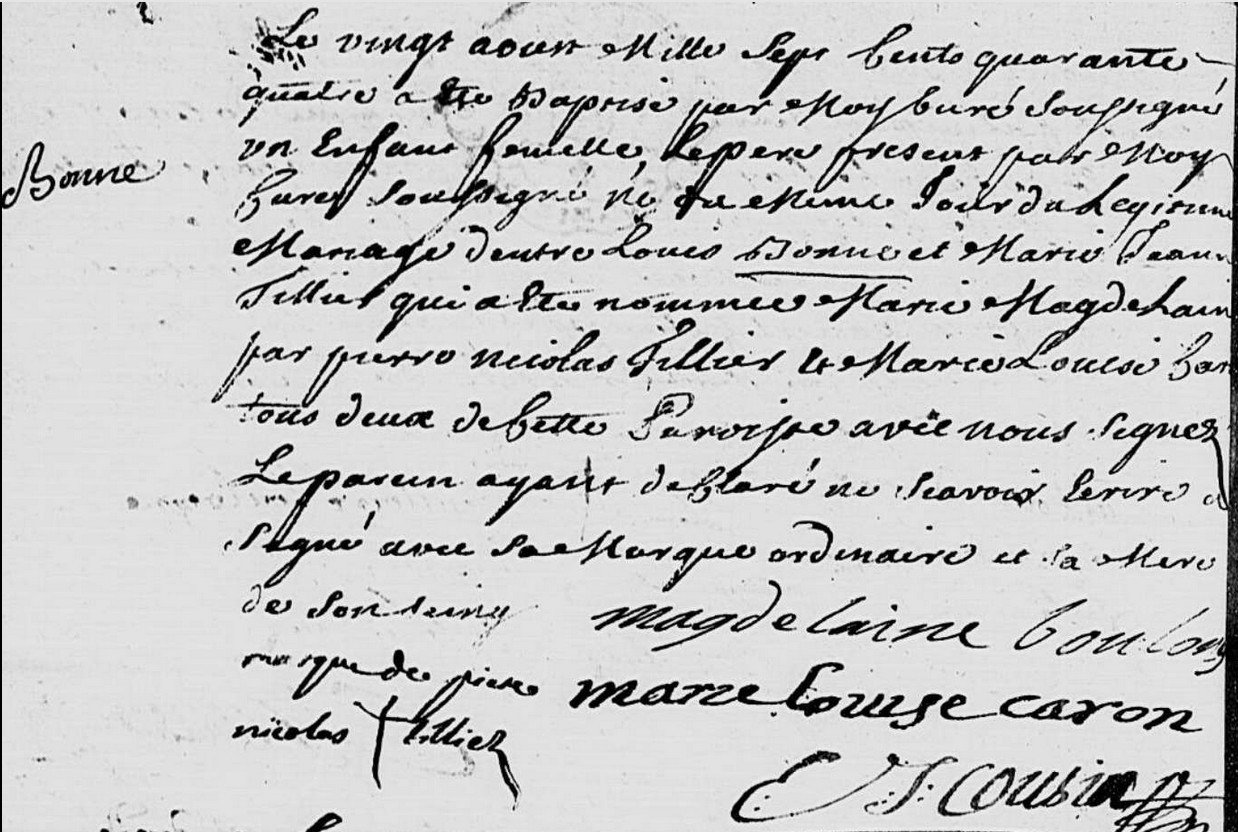 Le vingt aoust Mille Sept Cents quarante
quatre a Ete Baptisé par Moy Curé Soussigné
un Enfant femelle, Le pere present par Moy
Curé Soussigné né Ce Meme Jour du Legitime
Bonne
Mariage d'entre Louis Bonne et Marie Jeanne
Tillier qui a Ete nommee Marie Magdelaine
par pierre nicolas Tillier et Marie Louise Car
tous deux de Cette Paroisse avec nous Signez
Le parein ayant declaré ne Scavoir Ecrire a
Signé avec Sa Marque ordinaire et la Mere
de Son Seing
magdelaine
marque de pierre
marie louise caron
nicolas Tillier
Cousin